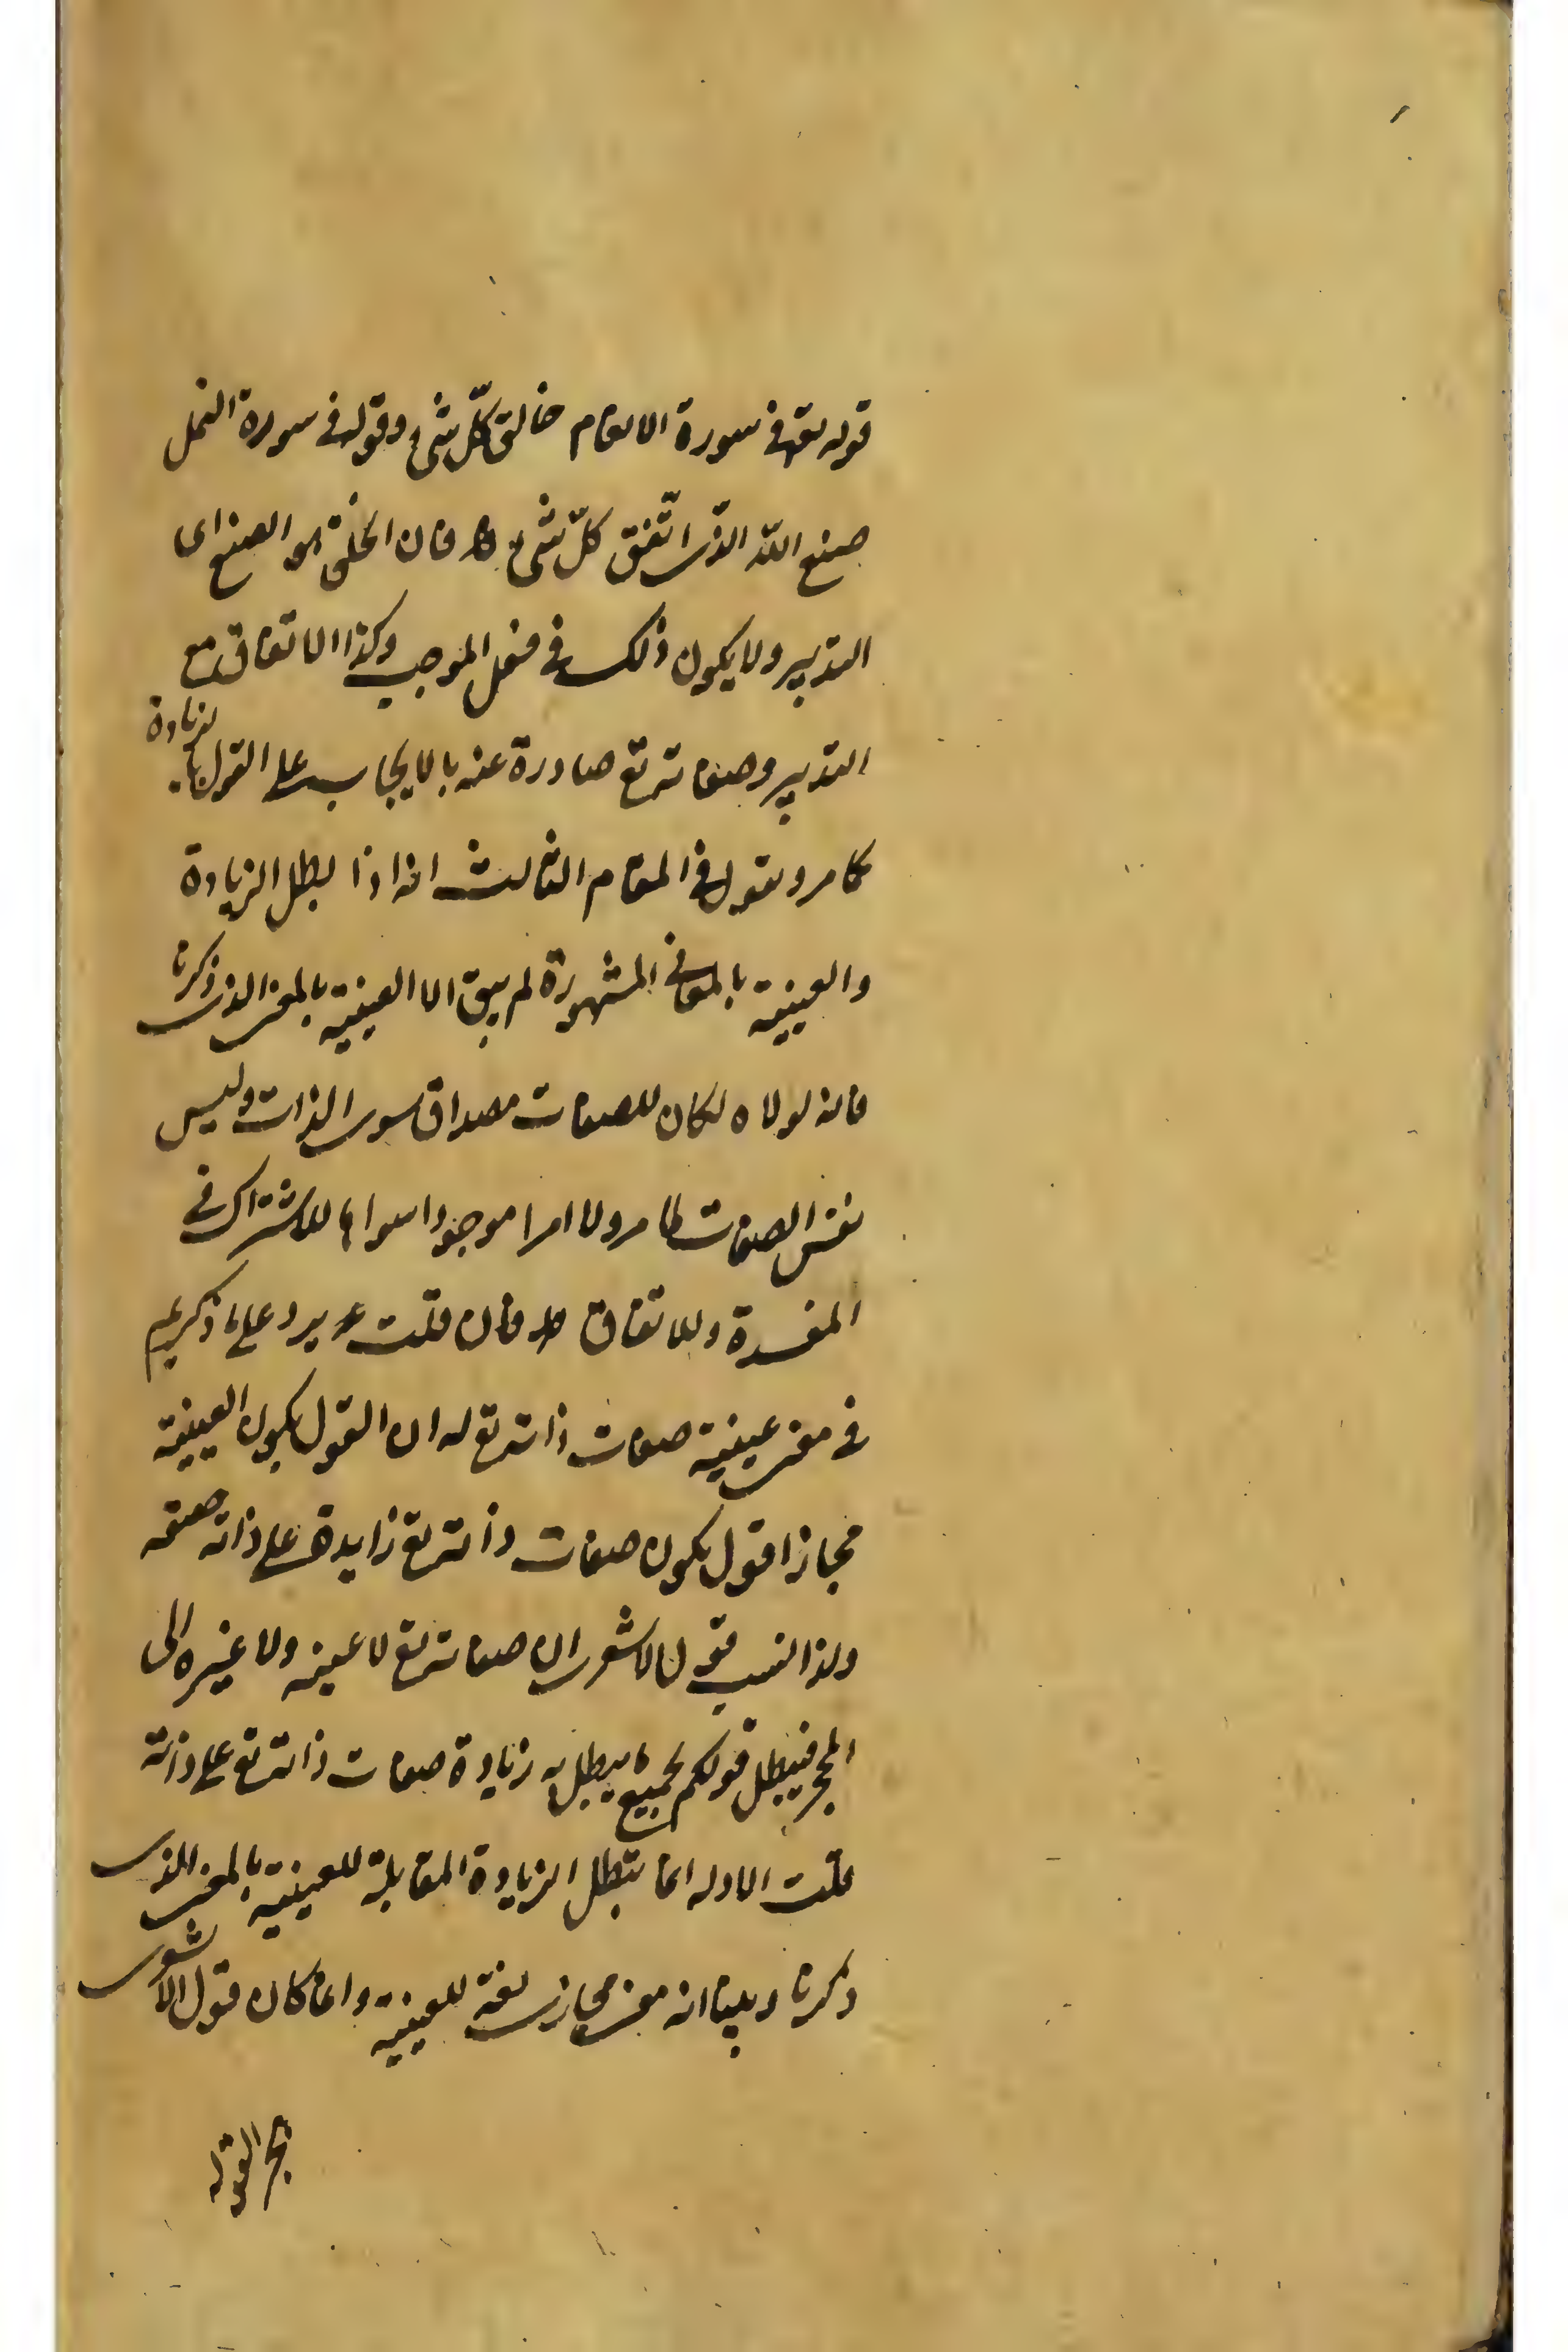 قوله تع في سورة الانعام خالق كلّ شئ وقوله في سورة النمل
صنع الله الذى اتّقن كلّ شئ فان الخلق هو الصنع اى
التدبير ولا يكون ذلك في فعل الموجب وكذا الاتقان مع
التدبير وصفاته تع صادرة عنه بالايجاب على القول بالزيادة
كما مر ونقول في المقام الثالث انه اذا بطل الزيادة
والعينية بالمعانى المشهورة لم يبق الا العينية بالمعنى الذى ذكرنا
فانه لولاه لكان للصفات مصداق سوى الذات وليس
نفس الصفات لما مر ولا امرا موجودا سواها للاشتراك في
المفسدة وللاتفاق فان قلت يرد على ما ذكرتم
في معنى عينية صفات ذاته تع له ان القول بكون العينية
مجازا قول بكون صفات ذاته تع زايدة على ذاته حقيقة
ولذا نسب قول الاشعرى ان صفاته تع لا عينه ولا غيره الى
فيبطل قولكم بجميع ما يبطل به زيادة صفات ذاته تع على ذاته
قلت الادلة انما تبطل الزيادة المقابلة للعينية بالمعنى الذى
ذكرنا وبينا انه معنى مجازى لغة للعينية وانما كان قول الاشعرى